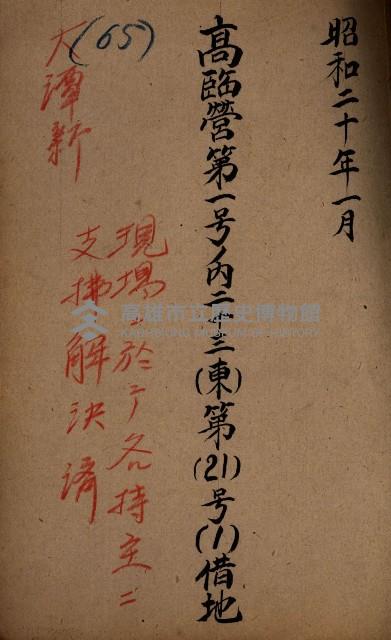 昭和二十年一月
高臨營第一号ノ内二十三(東)第(21)号(1)借地
(65)
大潭新
現場於テ各持主ニ
支拂解決濟
高雄市立歷史博物館
KAOHSIUNG MUSEUM OF HISTORY